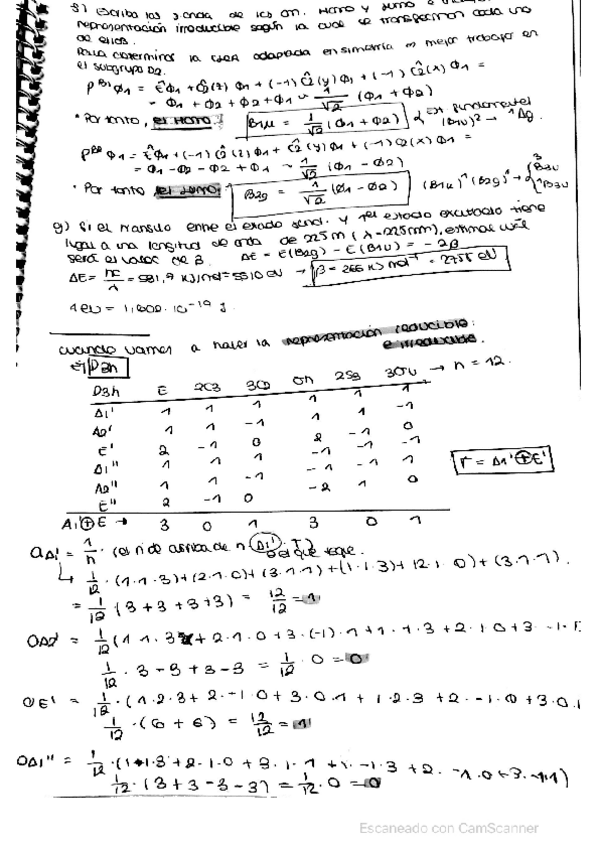 3) Escriba las de los OM. HOMO y LUMO e
representación irreducible según la cual se transforman cada uno
de ellos.
Para determinar la adaptada en simetría es mejor trabajar en
el subgrupo D2.
P^B1 ϕ1 = Êϕ1 + Ĉ2(z) ϕ1 + (-1) Ĉ2(y) ϕ1 + (-1) Ĉ2(x) ϕ1 =
= ϕ1 + ϕ2 + ϕ2 + ϕ1 ~ 1/√2 (ϕ1 + ϕ2)
• Por tanto, el HOMO: B1u = 1/√2 (ϕ1 + ϕ2) fundamental (B1u)² → ¹Ag
ϕ1 = Êϕ1 + (-1) Ĉ2(z) ϕ1 + Ĉ2(y) ϕ1 + (-1) Ĉ2(x) ϕ1 =
= ϕ1 - ϕ2 - ϕ2 + ϕ1 ~ 1/√2 (ϕ1 - ϕ2)
• Por tanto el LUMO: B2g = 1/√2 (ϕ1 - ϕ2) (B1u)¹ (B2g)¹ → ³B3u ¹B3u
g) Si el tránsito entre el estado fund. y 1er estado excitado tiene
lugar a una longitud de onda de 225 m (λ=225nm), estimar cuál
será el valor de β. ΔE = E(B2g) - E(B1u) = -2β
ΔE = hc/λ = 531,9 kJ/mol = 5510 eV → β = 266 kJ mol⁻¹ = 2755 eV
1 eV = 1,602·10⁻¹⁹ J.
cuando vamos a hacer la representación reducible:
e irreducible.
Ej D3h
D3h E 2C3 3C2 σh 2S3 3σv → n = 12.
A1' 1 1 1 1 1 1
A2' 1 1 -1 1 1 -1
E' 2 -1 0 2 -1 0
A1'' 1 1 1 -1 -1 -1
A2'' 1 1 -1 -1 -1 1
E'' 2 -1 0 -2 1 0
Γ = A1' ⊕ E'
A1 ⊕ E → 3 0 1 3 0 1
aA1' = 1/n · (el nº de arriba de n · A1' · Γ) el que toque.
↳ 1/12 · (1·1·3)+(2·1·0)+(3·1·1)+(1·1·3)+(2·1·0)+(3·1·1).
= 1/12 (3 + 3 + 3 + 3) = 12/12 = 1
aA2' = 1/12 (1·1·3 + 2·1·0 + 3·(-1)·1 + 1·1·3 + 2·1·0 + 3·-1·
1/12 · 3 - 3 + 3 - 3 = 1/12 · 0 = 0
aE' = 1/12 · (1·2·3 + 2·-1·0 + 3·0·1 + 1·2·3 + 2·-1·0 + 3·0·1
1/12 · (6 + 6) = 12/12 = 1
aA1'' = 1/12 · (1·1·3 + 2·1·0 + 3·1·1 + 1·-1·3 + 2·-1·0 + 3·-1·1)
1/12 · (3 + 3 - 3 - 3) = 1/12 · 0 = 0
Escaneado con CamScanner